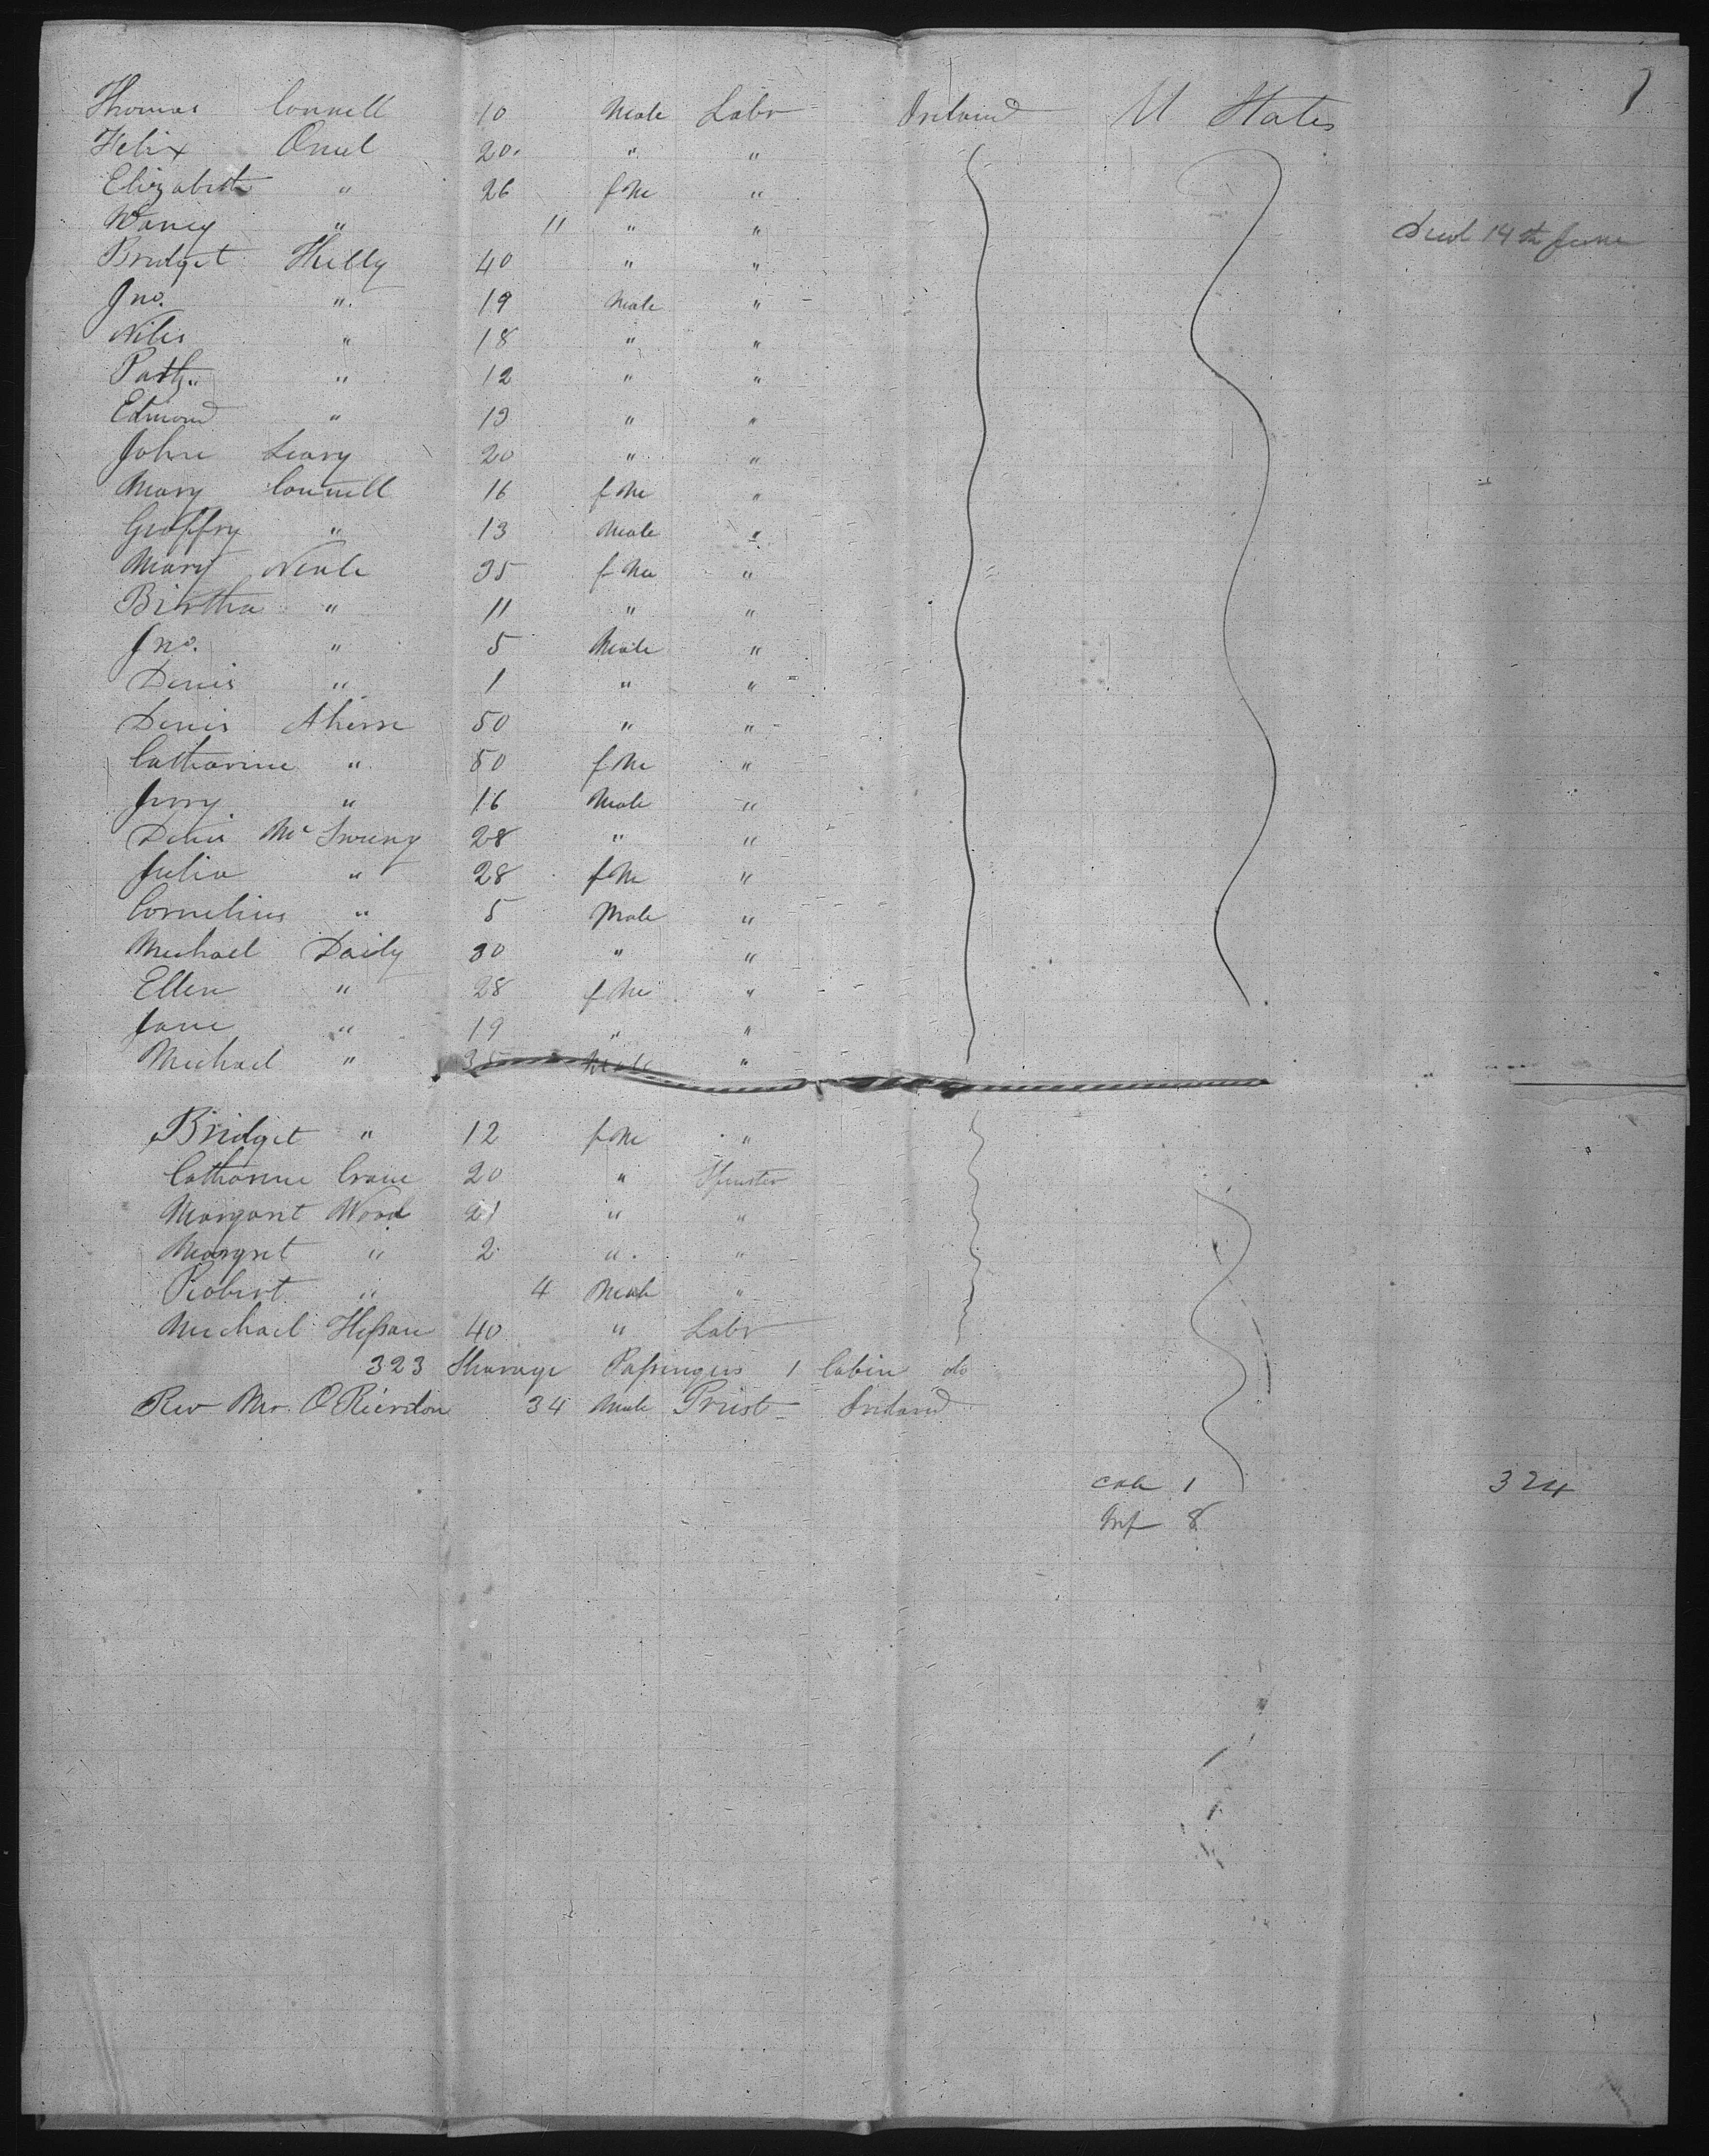 Thomas Connell 10 Male Labr Ireland U States
Felix Oneel 20 " "
Elizabeth " 26 fMe "
Nancy " 11 " " Died 14th June
Bridget Kelly 40 " "
Jno. " 19 Male "
" 18 " "
" 12 " "
Edmond " 19 " "
John Leary 20 " "
Mary Connell 16 fMe "
Geoffry " 13 Male "
Mary Neale 35 fMe "
Birtha " 11 " "
Jno. " 5 Male "
Denis " 1 " "
Denis Ahern 50 " "
Catharine " 50 fMe "
Jerry " 16 Male "
Denis Mc Sweeny 28 " "
Julia " 28 fMe "
Cornelius " 5 Male "
Michael Daily 30 " "
Ellen " 28 fMe "
Jane " 19 " "
Michael " 35 Male "
Bridget " 12 fMe "
Catharine Crane 20 " Spinster
Margaret Wood 21 " "
Margret " 2 " "
Robert " 4 Male "
Michael 40 " Labr
323 Steerage Passengers 1 Cabin do
Rev Mr. O Rierdon 34 Male Priest Ireland
cab 1 324
Inf 8